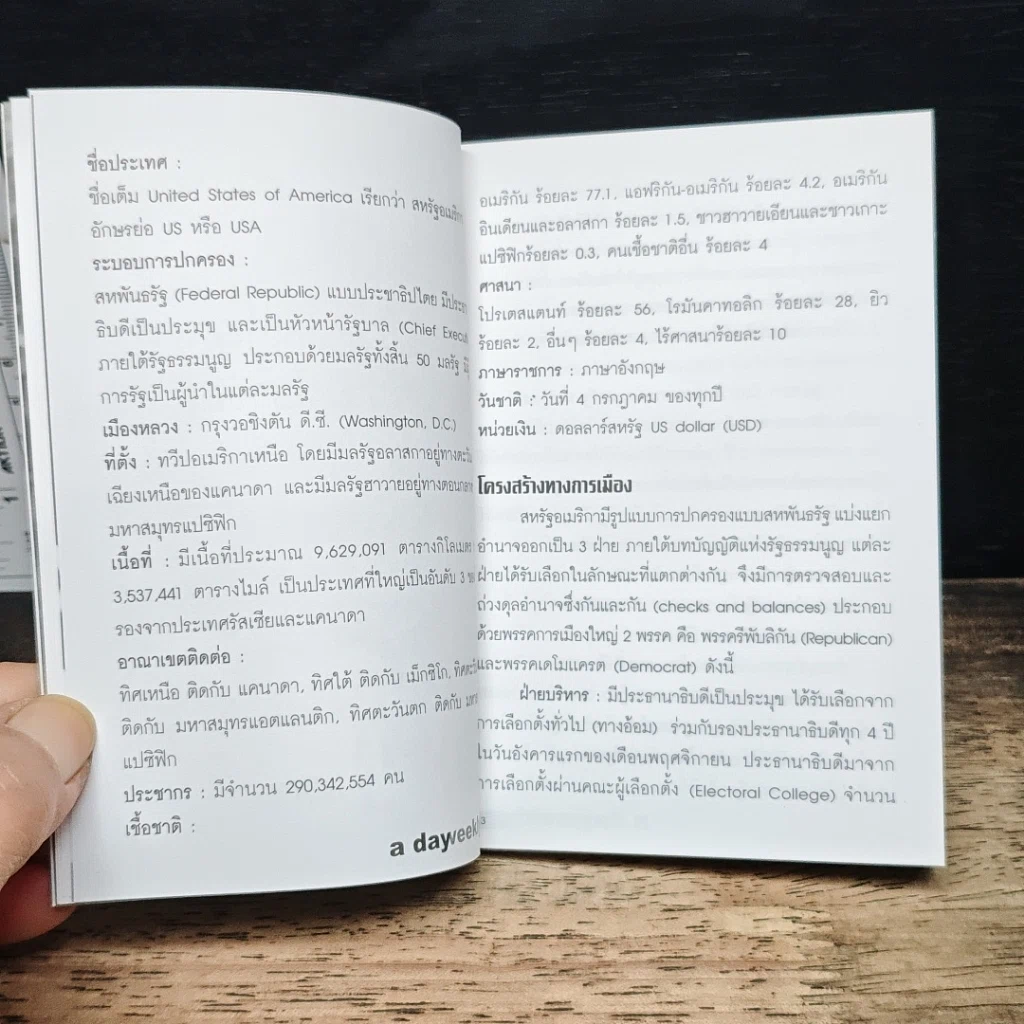 ชื่อประเทศ :
ชื่อเต็ม United States of America เรียกว่า สหรัฐอเมริกา
อักษรย่อ US หรือ USA
ระบอบการปกครอง :
สหพันธรัฐ (Federal Republic) แบบประชาธิปไตย
ธิบดีเป็นประมุข และเป็นหัวหน้ารัฐบาล (Chief
ภายใต้รัฐธรรมนูญ ประกอบด้วยมลรัฐทั้งสิ้น 50 มลรัฐ
การรัฐเป็นผู้นำในแต่ละมลรัฐ
เมืองหลวง : กรุงวอชิงตัน ดี.ซี. (Washington, D.C.)
ที่ตั้ง : ทวีปอเมริกาเหนือ โดยมีมลรัฐอลาสกาอยู่
เฉียงเหนือของแคนาดา และมีมลรัฐฮาวายอยู่
มหาสมุทรแปซิฟิก
เนื้อที่ : มีเนื้อที่ประมาณ 9,629,091 ตารางกิโลเมตร
3,537,441 ตารางไมล์ เป็นประเทศที่ใหญ่เป็นอันดับ 3
รองจากประเทศรัสเซียและแคนาดา
อาณาเขตติดต่อ :
ทิศเหนือ ติดกับ แคนาดา, ทิศใต้ ติดกับ เม็กซิโก,
ติดกับ มหาสมุทรแอตแลนติก, ทิศตะวันตก ติดกับ
แปซิฟิก
ประชากร : มีจำนวน 290,342,554 คน
เชื้อชาติ :
a day weekly
อเมริกัน ร้อยละ 77.1, แอฟริกัน-อเมริกัน ร้อยละ 4.2, อเมริกัน
อินเดียนและอลาสกา ร้อยละ 1.5, ชาวฮาวายเอียนและชาวเกาะ
แปซิฟิกร้อยละ 0.3, คนเชื้อชาติอื่น ร้อยละ 4
ศาสนา :
โปรเตสแตนท์ ร้อยละ 56, โรมันคาทอลิก ร้อยละ 28, ยิว
ร้อยละ 2, อื่นๆ ร้อยละ 4, ไร้ศาสนาร้อยละ 10
ภาษาราชการ : ภาษาอังกฤษ
วันชาติ : วันที่ 4 กรกฎาคม ของทุกปี
หน่วยเงิน : ดอลลาร์สหรัฐ US dollar (USD)
โครงสร้างทางการเมือง
สหรัฐอเมริกามีรูปแบบการปกครองแบบสหพันธรัฐ แบ่งแยก
อำนาจออกเป็น 3 ฝ่าย ภายใต้บทบัญญัติแห่งรัฐธรรมนูญ แต่ละ
ฝ่ายได้รับเลือกในลักษณะที่แตกต่างกัน จึงมีการตรวจสอบและ
ถ่วงดุลอำนาจซึ่งกันและกัน (checks and balances) ประกอบ
ด้วยพรรคการเมืองใหญ่ 2 พรรค คือ พรรครีพับลิกัน (Republican)
และพรรคเดโมแครต (Democrat) ดังนี้
ฝ่ายบริหาร : มีประธานาธิบดีเป็นประมุข ได้รับเลือกจาก
การเลือกตั้งทั่วไป (ทางอ้อม) ร่วมกับรองประธานาธิบดีทุก 4 ปี
ในวันอังคารแรกของเดือนพฤศจิกายน ประธานาธิบดีมาจาก
การเลือกตั้งผ่านคณะผู้เลือกตั้ง (Electoral College) จำนวน
3